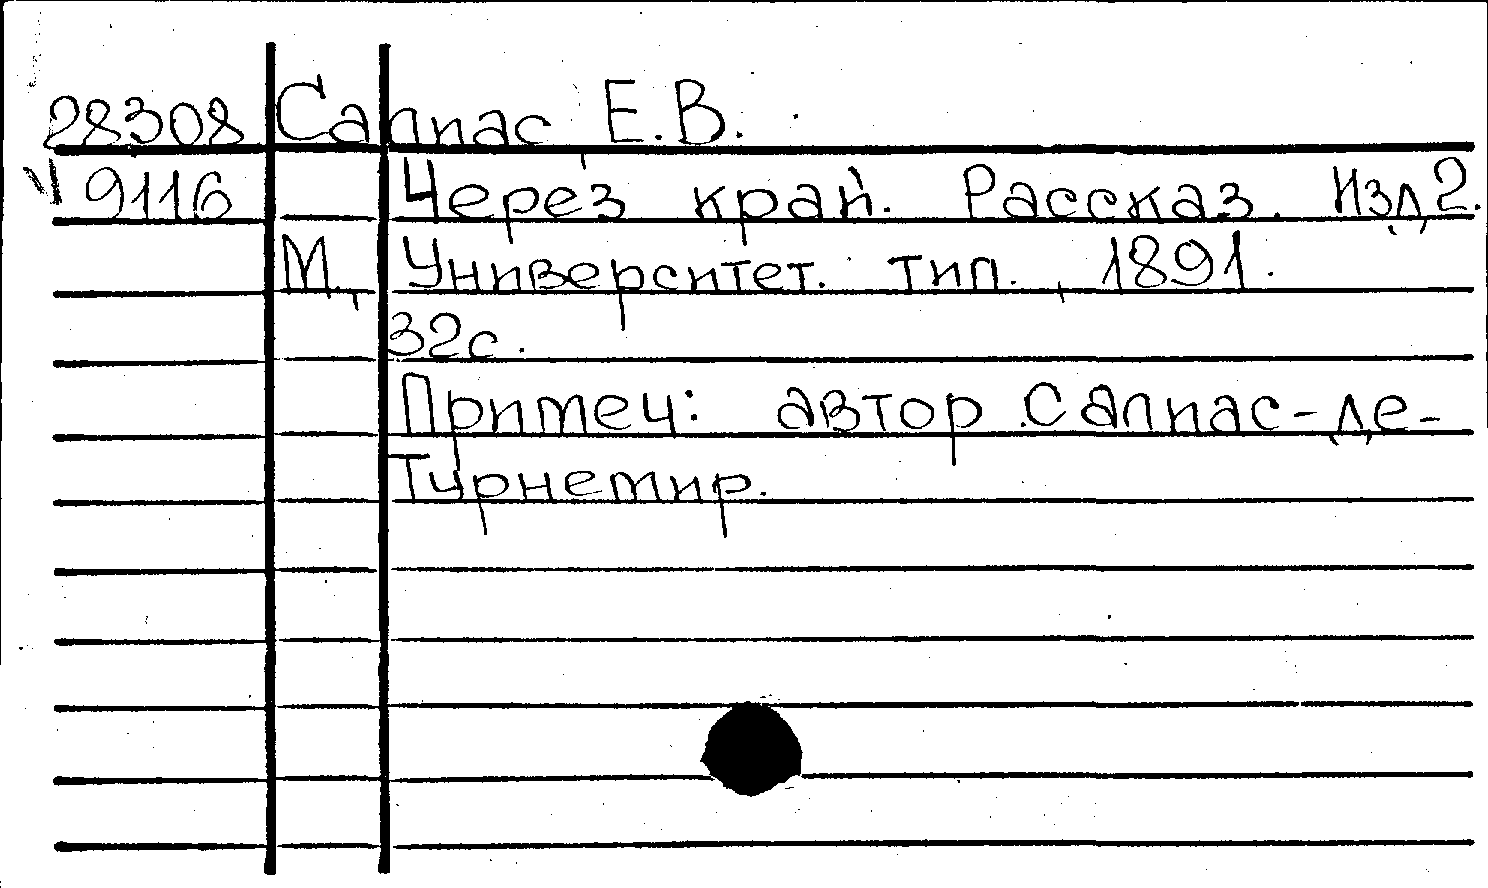 28308 Салиас Е.В.
Ч 9116 Через край. Рассказ. Изд 2.
М., Университет. тип., 1891.
32с.
Примеч: автор Салиас-де-
Турнемир.